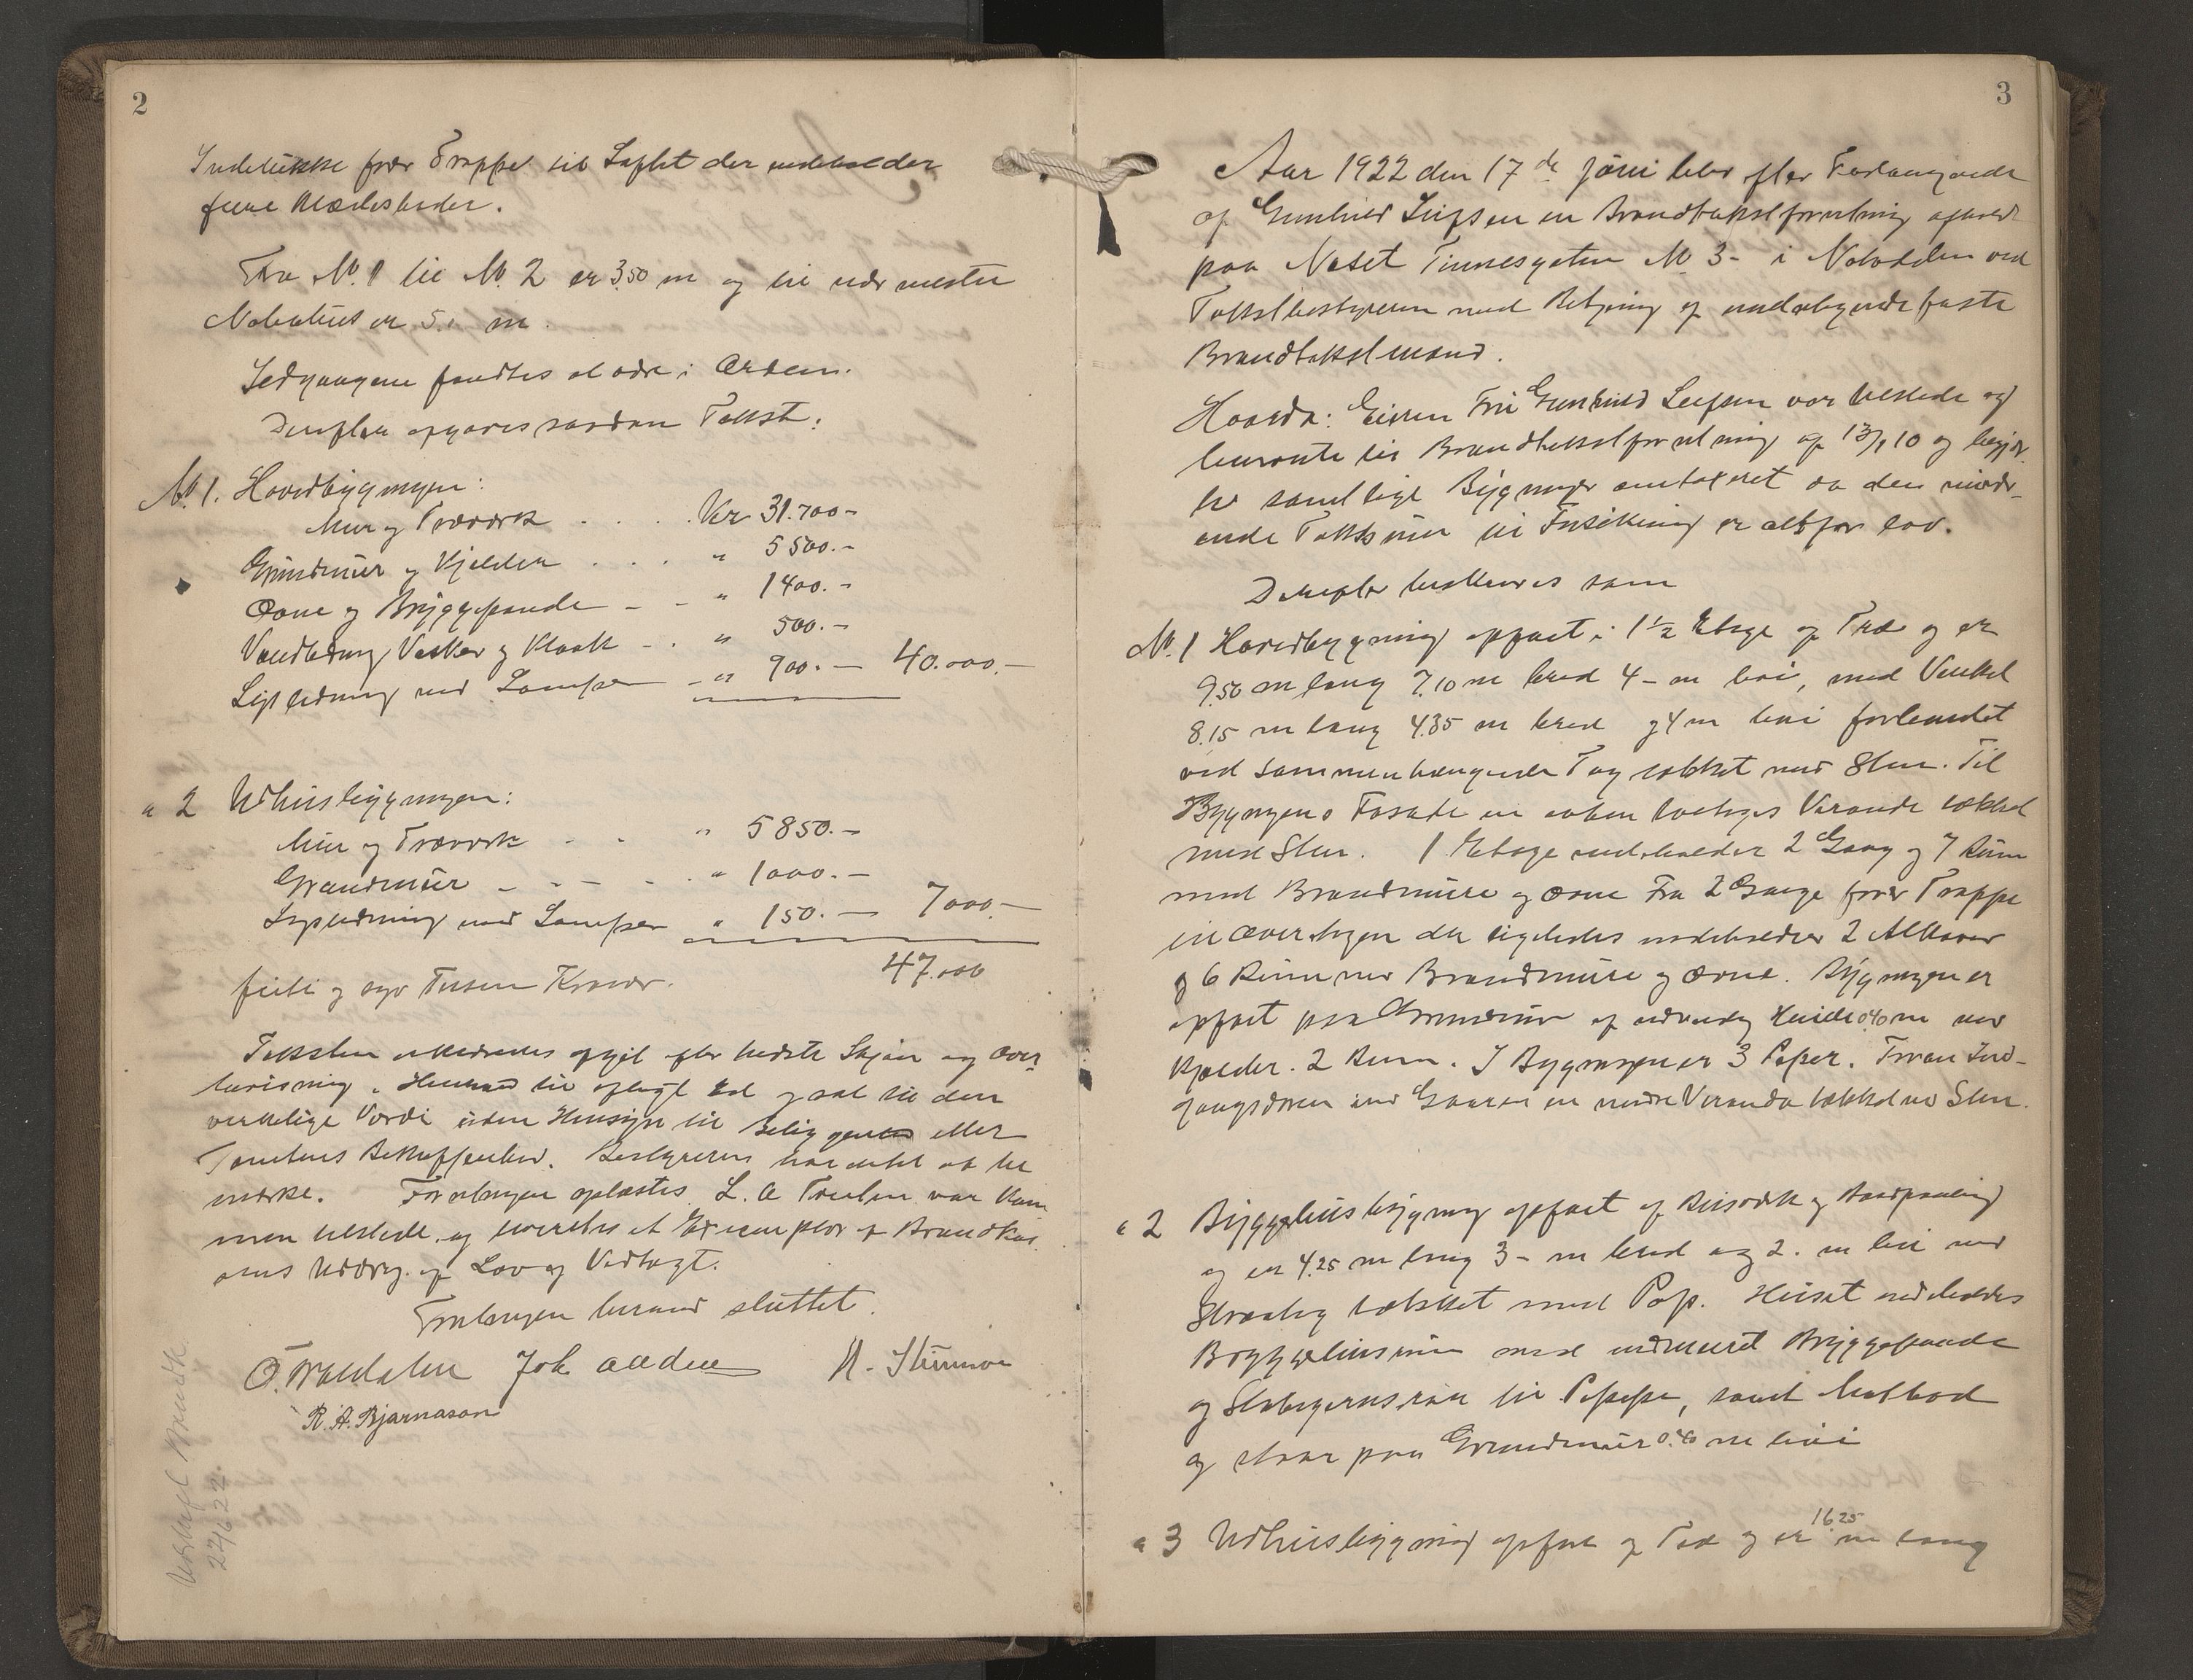 2
Indelukke fører Trappe til Loftet der indeholder
fire Klædesboder.
Fra No. 1 til No. 2 er 3.50 m og til nærmeste
Nabohus er 5. m.
Ildgangene fandtes at være i Orden.
Derefter afgaves saadan Takst:
No. 1. Hovedbygningen:
Mur og Træværk . . . . Kr 31.700-
Grundmur og Kjelder . . . " 5500.-
Ovne og Bryggepande - - " 1400.-
Vandledning, Vasker og Kloak - . " 500.-
Lysledning med Lamper - " 900.- 40.000.-
" 2 Udhusbygningen:
Mur og Træværk . . " 5850.-
Grundmur - - - . " 1000.-
Lysledning med Lamper " 150.- 7000.-
førti og syv Tusen Kroner. 47.000
Taksten erklæredes afgit efter bedste Skjøn og Over-
bevisning, Henned til ælde og til den
virkelige Værdi uden Hensyn til Beliggenhed eller
Tomtens Beskaffenhed. Bestyreren har intet at be
mærke. Forretningen oplæstes. L. A. var kom
men tilstede og leveredes et Exemplar af Brandkas
sens Uddrag af Lov og Vedtægt.
Forretningen hermed sluttet.
Joh. H.
R. A. Bjarnason
Utskrift
27/6 22.
3
Aar 1922 den 17de Juni blev efter Forlangende
af Gunhild Leifsen en Brandtakstforretning afholdt
paa Næset Tinnesgaten No 3- i Notodden ved
Takstbestyreren med Betjening af undertegnede faste
Brandtakstmænd.
Hvorda: Eieren Fru Gunhild Leifsen var tilstede og
henviste til Brandtakstforretning af 13/9 10 og begjær-
te samtlige Bygninger omtaxeret da den nuvær-
ende Takstsum til Forsikring er altfor lav.
Derefter beskreves som
No. 1 Hovedbygning opført i 1 1/2 Etage af Træ og er
9.50 m lang 7.10 m bred 4- m høi, med Vinkel
8.15 m lang 4.35 m bred og 4 m høi forbundet
ved sammenhængende Tag tækket med Sten. Til
Bygningens Fasade en aaben toetages Veranda tækket
med Sten. 1 Etage indeholder 2 Gang og 7 Rum
med Brandmure og Ovne Fra 2 Gange fører Trappe
til Overetagen der ligeledes indeholder 2 Alkover
og 6 Rum med Brandmure og Ovne. Bygningen er
opført paa Grundmur af udvendig Høide 0.40 m med
Kjælder. 2 Rum. I Bygningen er 3 Piper. Foran Ind-
gangsdøren ind Gaarden en mindre Veranda tækket med Sten.
" 2 Bryggehusbygning opført af Reisværk og Bordpaneling
og er 4.25 m lang 3- m bred og 2. m høi med
Skraatag tækket med Pap. Huset indeholder
Bryggehusrum med indmuret Bryggepande
og Støbejernsrør til Pipe, samt Matbod
og staar paa Grundmur 0.40 m høi
" 3 Udhusbygning opført af Træ og er 16.25 m lang